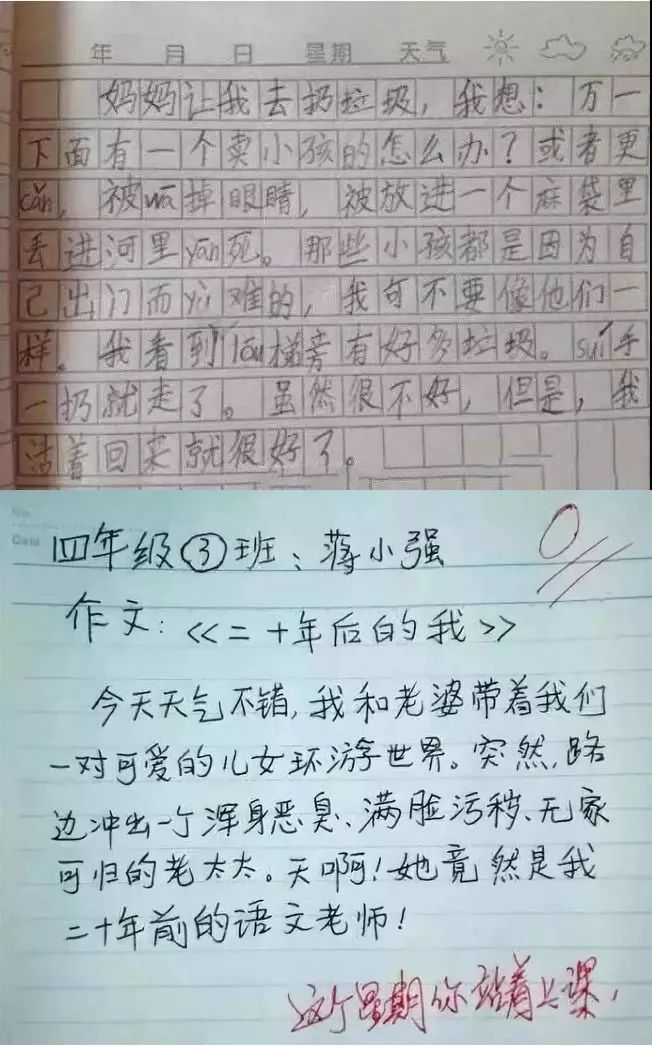 年 月 日 星期 天气
妈妈让我去扔垃圾，我想：万一
下面有一个卖小孩的怎么办？或者更
cǎn，被wā掉眼睛，被放进一个麻袋里
丢进河里yān死。那些小孩都是因为自
己出门而yù难的，我可不要像他们一
样。我看到lóu梯旁有好多垃圾。suí手
一扔就走了。虽然很不好，但是，我
活着回来就很好了。
Date
四年级③班：蒋小强
0
作文：《二十年后的我》
今天天气不错，我和老婆带着我们
一对可爱的儿女环游世界。突然，路
边冲出一个浑身恶臭、满脸污秽、无家
可归的老太太。天啊！她竟然是我
二十年前的语文老师！
这个星期你站着上课，